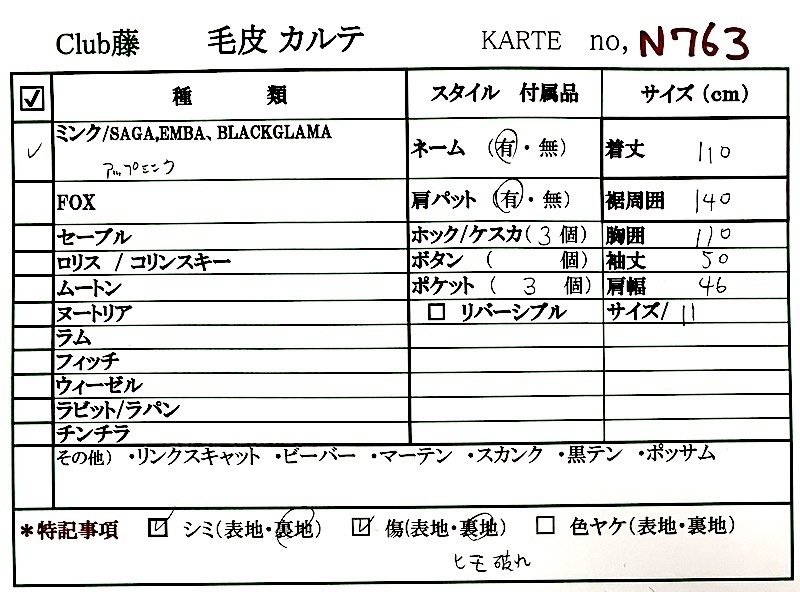 Club藤 毛皮 カルテ KARTE no, N763
種 類 スタイル 付属品 サイズ (cm)
ミンク/SAGA,EMBA、BLACKGLAMA
アップミンク
ネーム (有・無) 着丈 110
FOX 肩パット (有・無) 裾周囲 140
セーブル ホック/ケスカ( 3 個) 胸囲 110
ロリス / コリンスキー ボタン ( 個) 袖丈 50
ムートン ポケット ( 3 個) 肩幅 46
ヌートリア □ リバーシブル サイズ/ 11
ラム
フィッチ
ウィーゼル
ラビット/ラパン
チンチラ
その他) ・リンクスキャット ・ビーバー ・マーテン ・スカンク ・黒テン ・ポッサム
*特記事項 ☑ シミ(表地・裏地) ☑ 傷(表地・裏地) □ 色ヤケ(表地・裏地)
ヒモ破れ